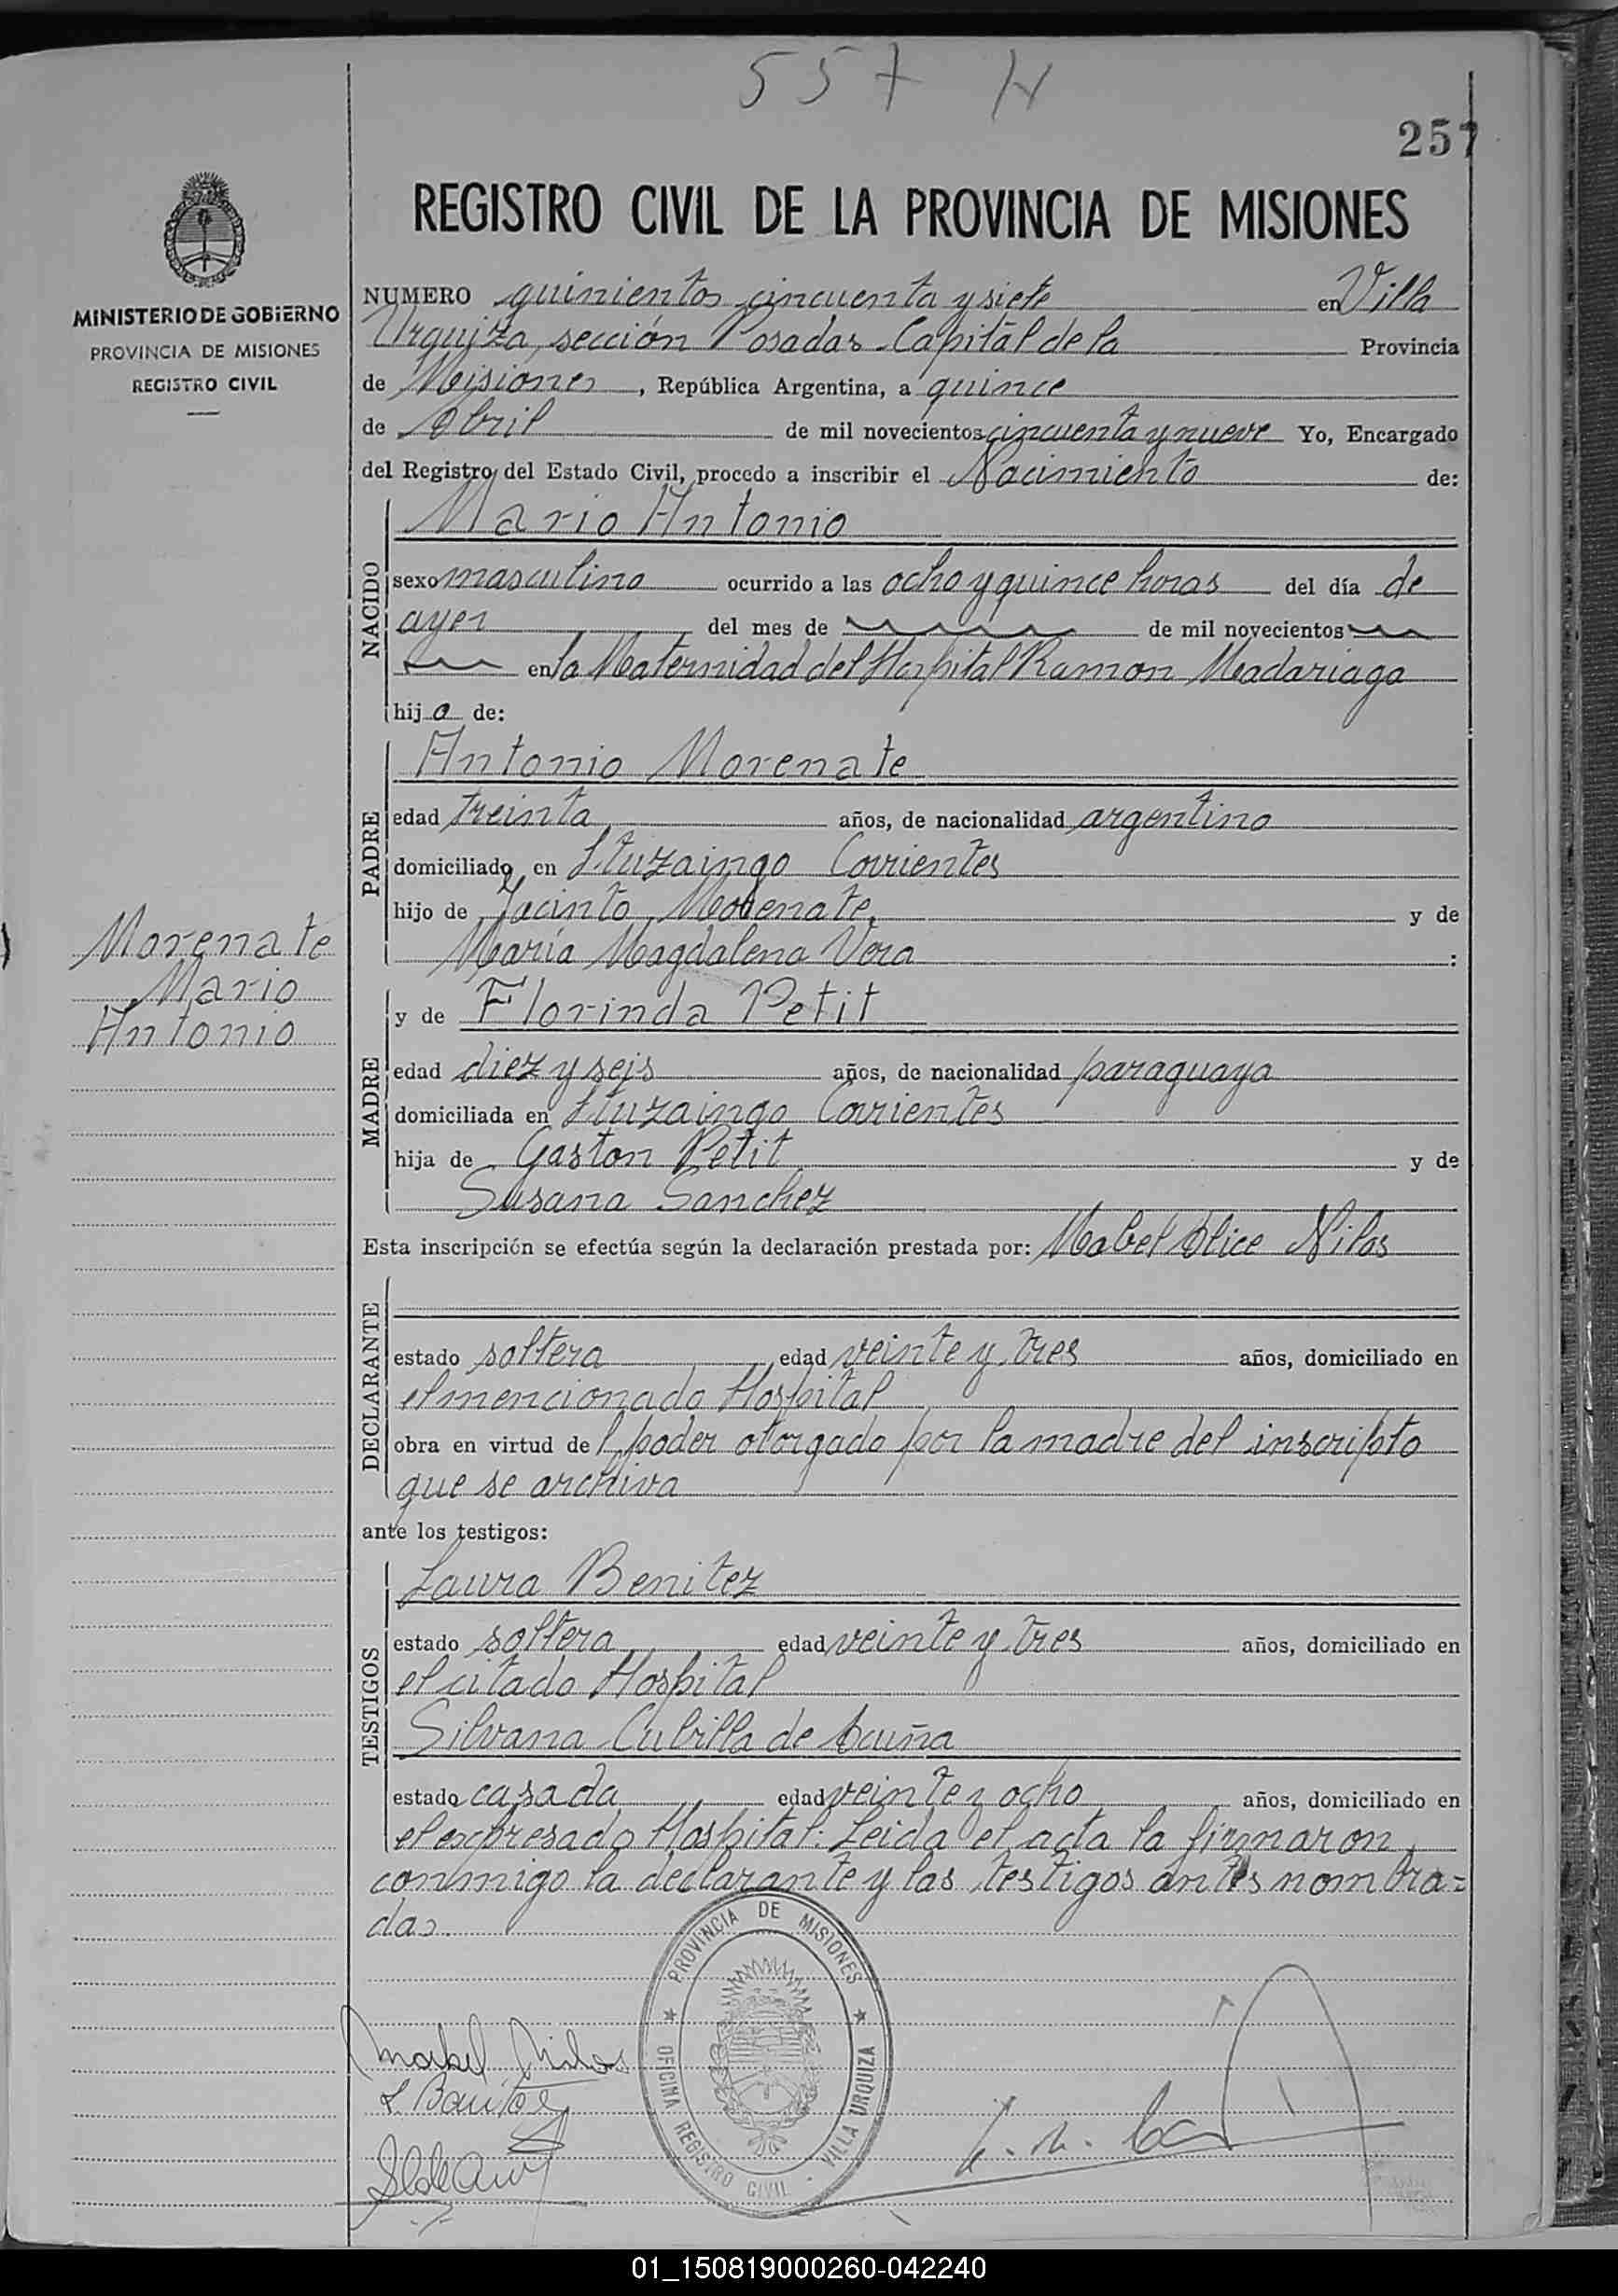 557 N
257
REGISTRO CIVIL DE LA PROVINCIA DE MISIONES
MINISTERIO DE GOBIERNO
PROVINCIA DE MISIONES
REGISTRO CIVIL
NUMERO quinientos cincuenta y siete en Villa
Urquiza, sección Posadas Capital de la Provincia
de Misiones, República Argentina, a quince
de Abril de mil novecientos cincuenta y nueve Yo, Encargado
del Registro del Estado Civil, procedo a inscribir el Nacimiento de:
NACIDO
Mario Antonio
sexo masculino ocurrido a las ocho y quince horas del día de
ayer del mes de de mil novecientos
en la Maternidad del Hospital Ramon Madariaga
hijo de:
PADRE
Antonio Morenate
edad treinta años, de nacionalidad argentino
domiciliado en Ituzaingo Corrientes
hijo de Jacinto Morenate y de
María Magdalena Vera :
Morenate
Mario
Antonio
MADRE
y de Florinda Petit
edad diez y seis años, de nacionalidad paraguaya
domiciliada en Ituzaingo Corrientes
hija de Gaston Petit y de
Susana Sanchez
Esta inscripción se efectúa según la declaración prestada por: Mabel Alice Nilos
DECLARANTE
estado soltera edad veinte y tres años, domiciliado en
el mencionado Hospital
obra en virtud del poder otorgado por la madre del inscripto
que se archiva
ante los testigos:
TESTIGOS
Laura Benitez
estado soltera edad veinte y tres años, domiciliado en
el citado Hospital
Silvana Cubilla de Acuña
estado casada edad veinte y ocho años, domiciliado en
el expresado Hospital. Leida el acta la firmaron
conmigo la declarante y las testigos antes nombra=
das.
Mabel Nilos
L. Benitez
PROVINCIA DE MISIONES
OFICINA REGISTRO CIVIL - VILLA URQUIZA
01_150819000260-042240